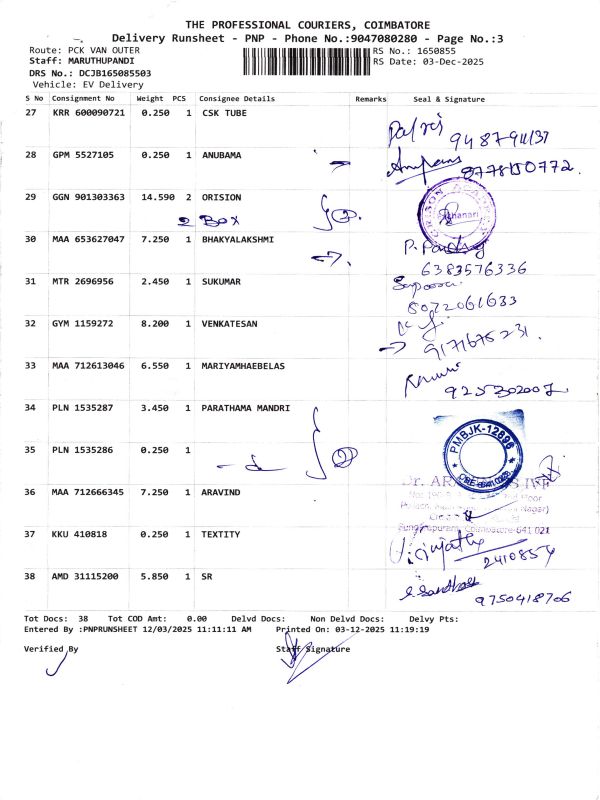 THE PROFESSIONAL COURIERS, COIMBATORE
Delivery Runsheet - PNP - Phone No.:9047080280 - Page No.:3
Route: PCK VAN OUTER
RS No.: 1650855
Staff: MARUTHUPANDI
RS Date: 03-Dec-2025
DRS No.: DCJB165085503
Vehicle: EV Delivery
S No Consignment No Weight PCS Consignee Details Remarks Seal & Signature
27 KRR 600090721 0.250 1 CSK TUBE
28 GPM 5527105 0.250 1 ANUBAMA
29 GGN 901303363 14.590 2 ORISION
2 Box
30 MAA 653627047 7.250 1 BHAKYALAKSHMI
6383576336
31 MTR 2696956 2.450 1 SUKUMAR
32 GYM 1159272 8.200 1 VENKATESAN
9171675231
33 MAA 712613046 6.550 1 MARIYAMHAEBELAS
34 PLN 1535287 3.450 1 PARATHAMA MANDRI
PMBJK-12896
35 PLN 1535286 0.250 1
36 MAA 712666345 7.250 1 ARAVIND
37 KKU 410818 0.250 1 TEXTITY
2410854
38 AMD 31115200 5.850 1 SR
9750418706
Tot Docs: 38 Tot COD Amt: 0.00 Delvd Docs: Non Delvd Docs: Delvy Pts:
Entered By :PNPRUNSHEET 12/03/2025 11:11:11 AM Printed On: 03-12-2025 11:19:19
Verified By Staff Signature